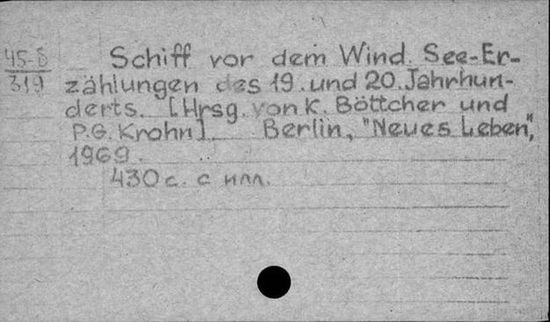 45-8
319
Schiff vor dem Wind. See-Er-
zählungen des 19. und 20. Jahrhun-
derts. [Hrsg. von K. Böttcher und
P.G. Krohn]. Berlin, "Neues Leben",
1969.
430 с. с илл.